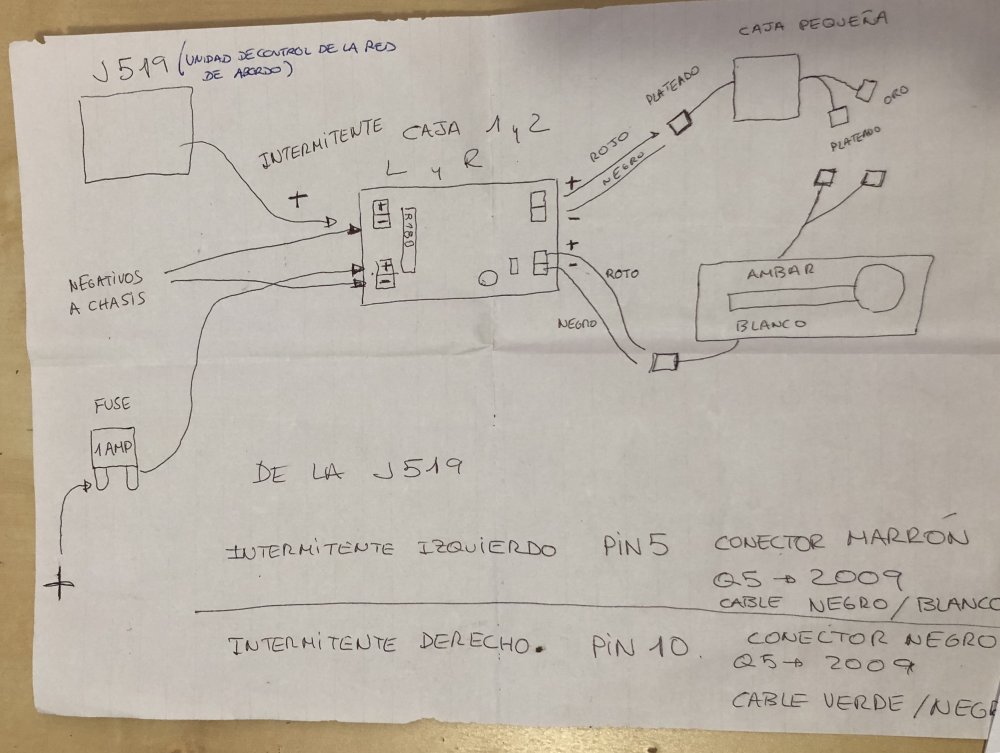 CAJA PEQUEÑA
J519 (UNIDAD DE CONTROL DE LA RED
DE ABORDO)
INTERMITENTE
CAJA 1 y 2
L y R
PLATEADO
ORO
PLATEADO
ROJO
NEGRO
+
+
-
+
-
+
-
IR180
+
-
NEGATIVOS
A CHASIS
ROJO
NEGRO
AMBAR
BLANCO
FUSE
1 AMP
+
DE LA J519
INTERMITENTE IZQUIERDO PIN 5 CONECTOR MARRÓN
Q5 → 2009
CABLE NEGRO/BLANCO
INTERMITENTE DERECHO. PIN 10. CONECTOR NEGRO
Q5 → 2009
CABLE VERDE/NEG